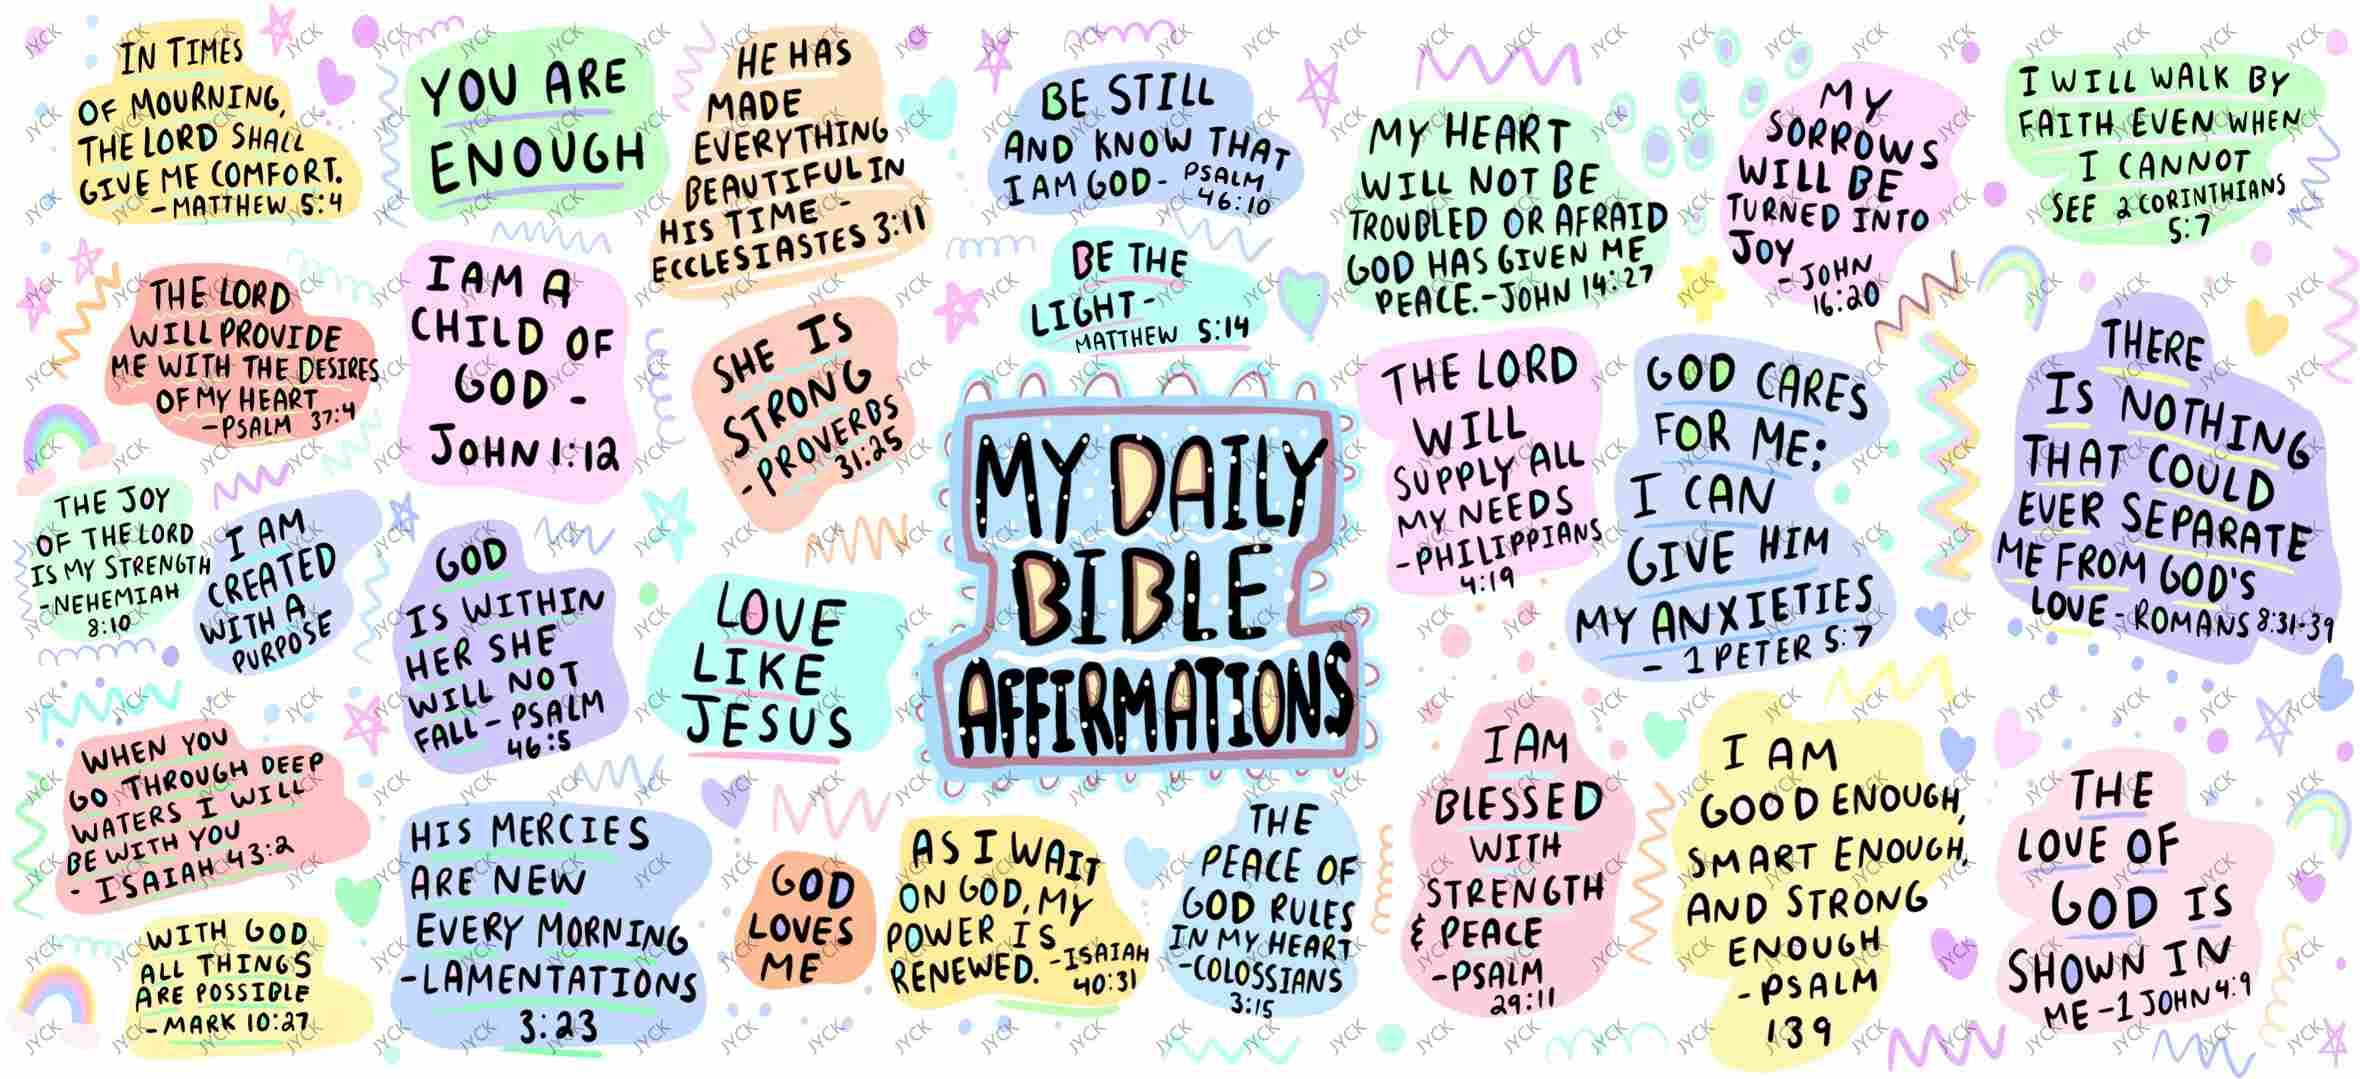 IN TIMES
OF MOURNING,
THE LORD SHALL
GIVE ME COMFORT.
-MATTHEW 5:4
YOU ARE
ENOUGH
HE HAS
MADE
EVERYTHING
BEAUTIFUL IN
HIS TIME -
ECCLESIASTES 3:11
BE STILL
AND KNOW THAT
I AM GOD- PSALM
46:10
MY HEART
WILL NOT BE
TROUBLED OR AFRAID
GOD HAS GIVEN ME
PEACE.-JOHN 14:27
MY
SORROWS
WILL BE
TURNED INTO
JOY
-JOHN
16:20
I WILL WALK BY
FAITH EVEN WHEN
I CANNOT
SEE 2 CORINTHIANS
5:7
THE LORD
WILL PROVIDE
ME WITH THE DESIRES
OF MY HEART
-PSALM 37:4
I AM A
CHILD OF
GOD -
JOHN 1:12
SHE IS
STRONG
-PROVERBS
31:25
BE THE
LIGHT-
MATTHEW 5:14
MY DAILY
BIBLE
AFFIRMATIONS
THE LORD
WILL
SUPPLY ALL
MY NEEDS
-PHILIPPIANS
4:19
GOD CARES
FOR ME;
I CAN
GIVE HIM
MY ANXIETIES
- 1 PETER 5:7
THERE
IS NOTHING
THAT COULD
EVER SEPARATE
ME FROM GOD'S
LOVE -ROMANS 8:31-39
THE JOY
OF THE LORD
IS MY STRENGTH
-NEHEMIAH
8:10
I AM
CREATED
WITH A
PURPOSE
GOD
IS WITHIN
HER SHE
WILL NOT
FALL- PSALM
46:5
LOVE
LIKE
JESUS
WHEN YOU
GO THROUGH DEEP
WATERS I WILL
BE WITH YOU
- ISAIAH 43:2
HIS MERCIES
ARE NEW
EVERY MORNING
-LAMENTATIONS
3:23
GOD
LOVES
ME
AS I WAIT
ON GOD, MY
POWER IS
RENEWED. -ISAIAH
40:31
THE
PEACE OF
GOD RULES
IN MY HEART
-COLOSSIANS
3:15
I AM
BLESSED
WITH
STRENGTH
& PEACE
-PSALM
29:11
I AM
GOOD ENOUGH,
SMART ENOUGH,
AND STRONG
ENOUGH
-PSALM
139
THE
LOVE OF
GOD IS
SHOWN IN
ME -1 JOHN 4:9
WITH GOD
ALL THINGS
ARE POSSIBLE
-MARK 10:27
JYCK